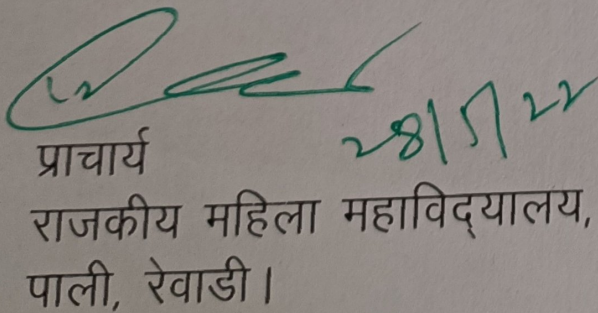 28/5/22
प्राचार्य
राजकीय महिला महाविद्यालय,
पाली, रेवाडी।